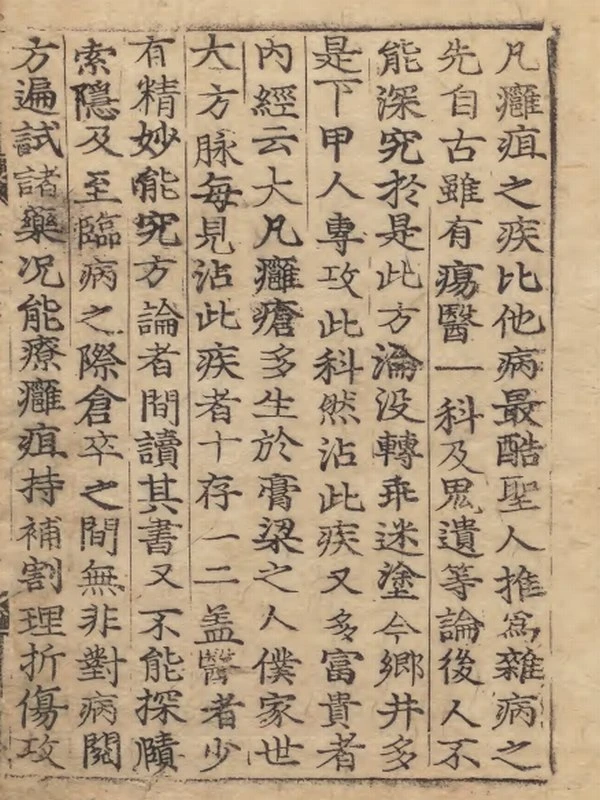 凡癰疽之疾比他病最酷聖人推爲雜病之
先自古雖有瘍醫一科及鬼遺等論後人不
能深究於是此方淪没轉乖迷塗今鄉井多
是下甲人專攻此科然沾此疾又多富貴者
内經云大凡癰瘡多生於膏梁之人僕家世
大方脉每見沾此疾者十存一二盖醫者少
有精妙能究方論者間讀其書又不能探賾
索隱及至臨病之際倉卒之間無非對病閱
方遍試諸藥况能療癰疽持補割理折傷攻